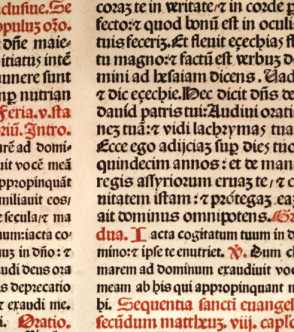 clusiue. Se
pulū oīo.
dñe maie-
itiatus intē
unere sunt
mp nutrian
Feria. v. sta
riū. Intro.
arē ad domi-
uit vocē meā
ppropinquāt
miliauit eos:
te secula: ⁊ ma
num: iacta co-
uus in dño: ⁊
udi deus ora
is deprecatio
⁊ exaudi me.
i. Oratio.
coraʒ te in veritate: ⁊ in corde p
fecto: ⁊ quod bonū est in oculis
tuis fecerim. Et fleuit eʒechias fle
tu magno: ⁊ factū est verbuʒ do
mini ad hesaiam dicens. Uade
⁊ dic eʒechie. Hec dicit dñs de
dauid patris tui: Audiui orati
nē tuā: ⁊ vidi lachrymas tuas
Ecce ego adijciaʒ sup dies tuo
quindecim annos: et de manu
regis assyriorum eruaʒ te, ⁊ ci
uitatem istam: ⁊ protegaʒ eaʒ
ait dominus omnipotens. Gra
dua. Iacta cogitatum tuum in do
mino: ⁊ ipse te enutriet. ℣. Dum cla
marem ad dominum exaudiuit voce
meam ab his qui appropinquant mi
hi. Sequentia sancti euangel
secūdum mattheuʒ. viij. capl'o